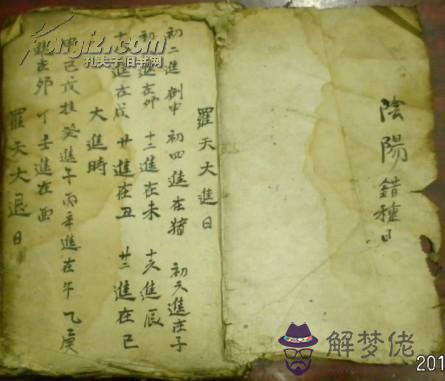 陰陽錯種日
羅天大進日
初二進 初四進在猪 初六進在子
初 進在卯 十二進在未 十六進辰
十 進在戌 廿進在丑 廿二進在巳
大進時
己戊 癸進午 丙辛進在午 乙庚
進在卯 丁壬進在酉
羅天大退日
kongfz.com
孔夫子旧书网
解梦佬
201